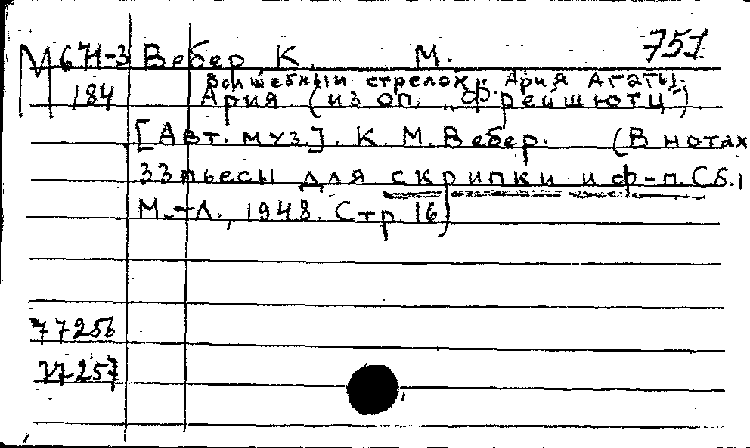 М 671-3 Вебер К. М. 751
184 Волшебный стрелок. Ария Агаты.
Ария (из оп. „Фрейшютц")
[Авт. муз.]. К. М. Вебер. (В нотах
33 пьесы для скрипки и ф-п. Сб. 1
М.-Л., 1948. Стр 16)
77256
77257